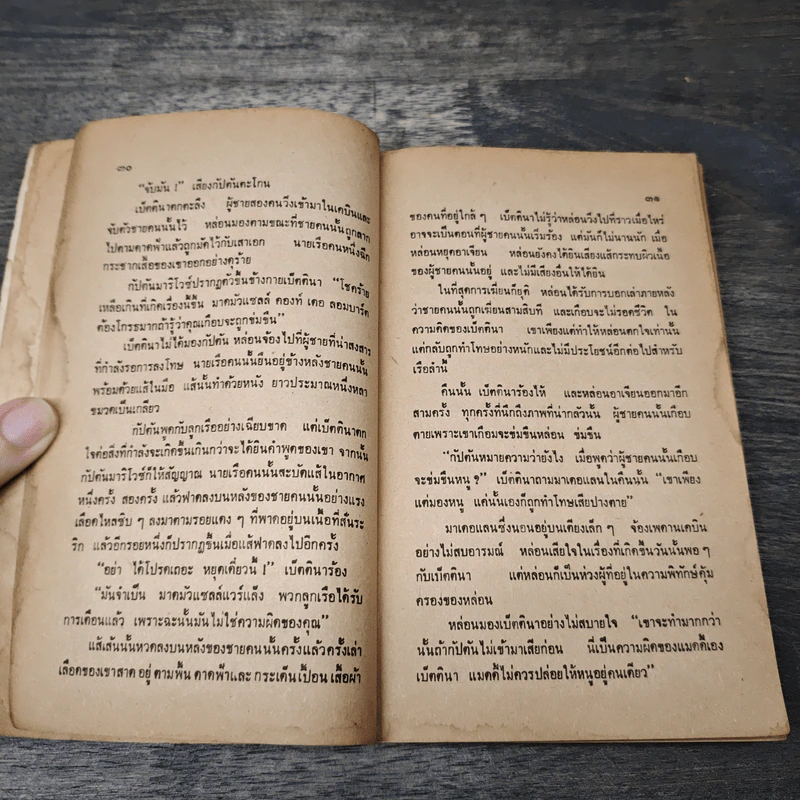 ๓๐
"จับมัน !" เสียงกัปตันตะโกน
เบ็ตตินาตกตะลึง ผู้ชายสองคนวิ่งเข้ามาในเคบินและ
จับตัวชายคนนั้นไว้ หล่อนมองตามขณะที่ชายคนนั้นถูกลาก
ไปตามดาดฟ้าแล้วถูกมัดไว้กับเสาเอก นายเรือคนหนึ่งฉีก
กระชากเสื้อของเขาออกอย่างดุร้าย
กัปตันมาริโวซ์ปรากฏตัวขึ้นข้างกายเบ็ตตินา "โชคร้าย
เหลือเกินที่เกิดเรื่องนี้ขึ้น มาดมัวแซลล์ คองท์ เดอ ลอมบาร์ด
ต้องโกรธมากถ้ารู้ว่าคุณเกือบจะถูกข่มขืน"
เบ็ตตินาไม่ได้มองกัปตัน หล่อนจ้องไปที่ผู้ชายที่น่าสงสาร
ที่กำลังรอการลงโทษ นายเรือคนนั้นยืนอยู่ข้างหลังชายคนนั้น
พร้อมด้วยแส้ในมือ แส้นั้นทำด้วยหนัง ยาวประมาณหนึ่งหลา
ขมวดเป็นเกลียว
กัปตันพูดกับลูกเรืออย่างเฉียบขาด แต่เบ็ตตินาตก
ใจต่อสิ่งที่กำลังจะเกิดขึ้นเกินกว่าจะได้ยินคำพูดของเขา จากนั้น
กัปตันมาริโวซ์ก็ให้สัญญาณ นายเรือคนนั้นสะบัดแส้ในอากาศ
หนึ่งครั้ง สองครั้ง แล้วฟาดลงบนหลังของชายคนนั้นอย่างแรง
เลือดไหลซิบ ๆ ลงมาตามรอยแดง ๆ ที่พาดอยู่บนเนื้อที่สั่นระ
ริก แล้วอีกรอยหนึ่งก็ปรากฏขึ้นเมื่อแส้ฟาดลงไปอีกครั้ง
"อย่า ได้โปรดเถอะ หยุดเดี๋ยวนี้ !" เบ็ตตินาร้อง
"มันจำเป็น มาดมัวแซลล์แวร์แล็ง พวกลูกเรือได้รับ
การเตือนแล้ว เพราะฉะนั้นมันไม่ใช่ความผิดของคุณ"
แส้เส้นนั้นหวดลงบนหลังของชายคนนั้นครั้งแล้วครั้งเล่า
เลือดของเขาสาด อยู่ ตามพื้น ดาดฟ้าและ กระเด็นเปื้อน เสื้อผ้า
๓๑
ของคนที่อยู่ใกล้ ๆ เบ็ตตินาไม่รู้ว่าหล่อนวิ่งไปที่ราวเมื่อไหร่
อาจจะเป็นตอนที่ผู้ชายคนนั้นเริ่มร้อง แต่มันก็ไม่นานนัก เมื่อ
หล่อนหยุดอาเจียน หล่อนยังคงได้ยินเสียงแส้กระทบผิวเนื้อ
ของผู้ชายคนนั้นอยู่ และไม่มีเสียงอื่นให้ได้ยิน
ในที่สุดการเฆี่ยนก็ยุติ หล่อนได้รับการบอกเล่าภายหลัง
ว่าชายคนนั้นถูกเฆี่ยนสามสิบที และเกือบจะไม่รอดชีวิต ใน
ความคิดของเบ็ตตินา เขาเพียงแต่ทำให้หล่อนตกใจเท่านั้น
แต่กลับถูกทำโทษอย่างหนักและไม่มีประโยชน์อีกต่อไปสำหรับ
เรือลำนี้
คืนนั้น เบ็ตตินาร้องไห้ และหล่อนอาเจียนออกมาอีก
สามครั้ง ทุกครั้งที่นึกถึงภาพที่น่ากลัวนั้น ผู้ชายคนนั้นเกือบ
ตายเพราะเขาเกือบจะข่มขืนหล่อน ข่มขืน
"กัปตันหมายความว่ายังไง เมื่อพูดว่าผู้ชายคนนั้นเกือบ
จะข่มขืนหนู ?" เบ็ตตินาถามมาเดอแลนในคืนนั้น "เขาเพียง
แต่มองหนู แต่นั้นเองก็ถูกทำโทษเสียปางตาย"
มาเดอแลนซึ่งนอนอยู่บนเตียงเล็ก ๆ จ้องเพดานเคบิน
อย่างไม่สบอารมณ์ หล่อนเสียใจในเรื่องที่เกิดขึ้นวันนั้นพอ ๆ
กับเบ็ตตินา แต่หล่อนก็เป็นห่วงผู้ที่อยู่ในความพิทักษ์คุ้ม
ครองของหล่อน
หล่อนมองเบ็ตตินาอย่างไม่สบายใจ "เขาจะทำมากกว่า
นั้นถ้ากัปตันไม่เข้ามาเสียก่อน นี่เป็นความผิดของแมดดี้เอง
เบ็ตตินา แมดดี้ไม่ควรปล่อยให้หนูอยู่คนเดียว"